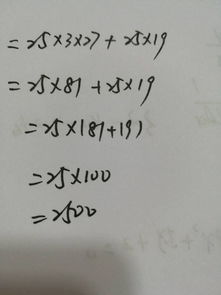 =25×3×27+25×19
=25×81+25×19
=25×(81+19)
=25×100
=2500